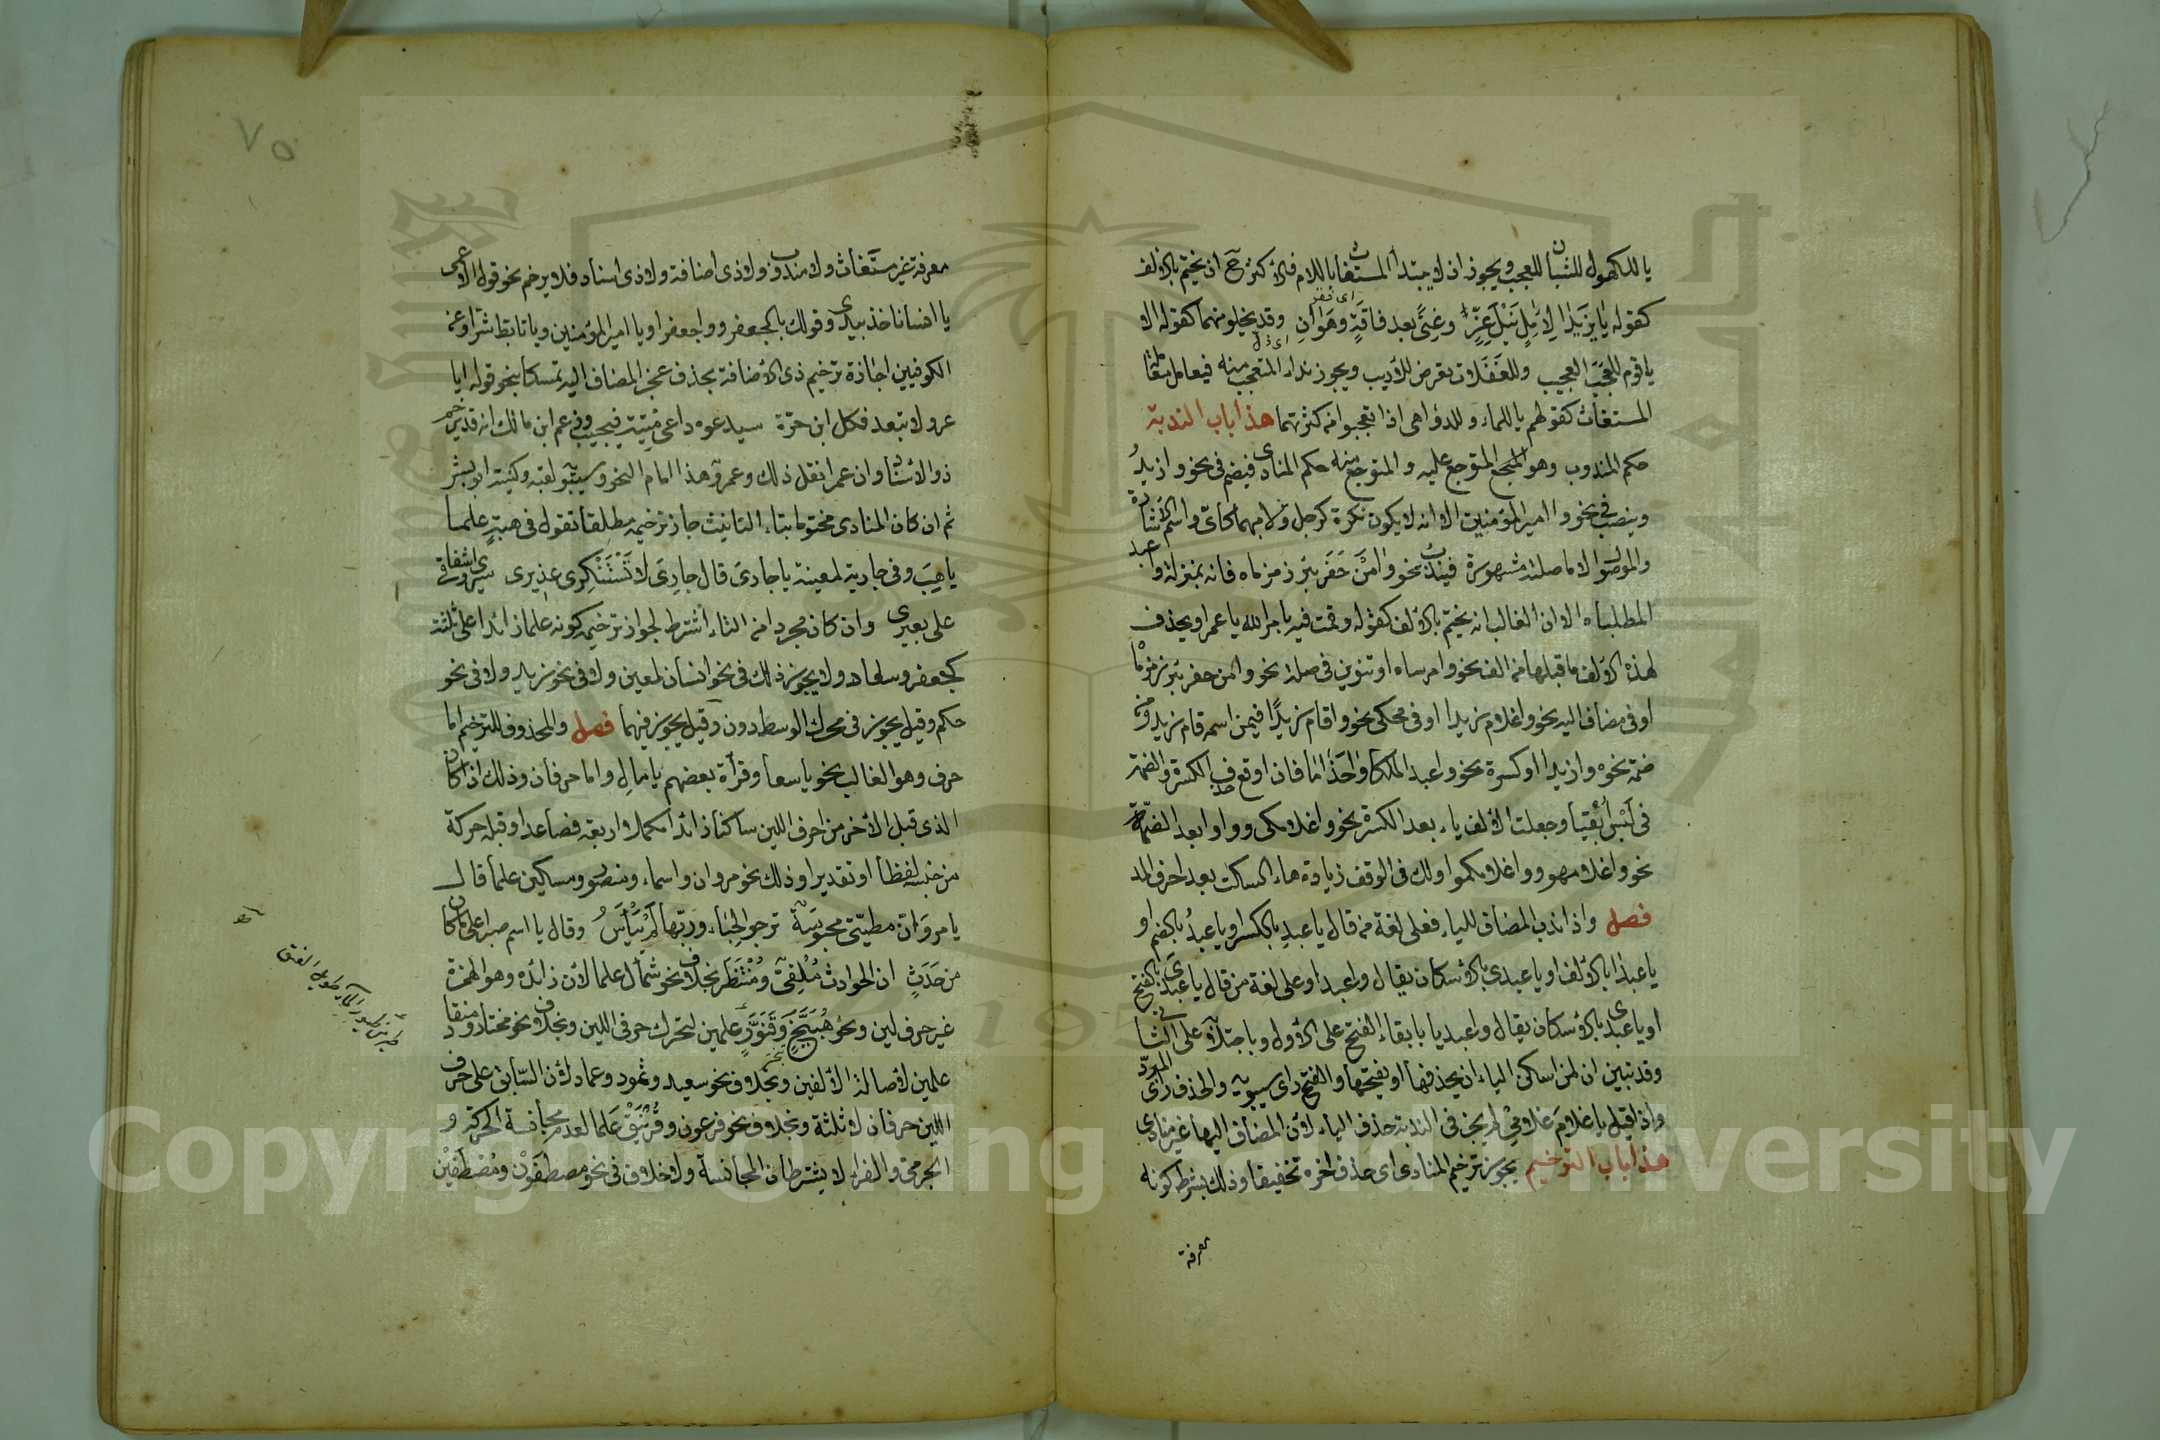 يا للكهول للشبان للعجب ويجوز ان لا يبتدأ المستغاث باللام فالأكثر ح ان يختم بالالف
كقوله يا يزيدا لآمل نيل عز وغنى بعد فاقة وهوان وقد يخلو منهما كقوله الا
اى فقر
اى ذل
يا قوم للعجب العجيب وللغفلات تعرض للأديب ويجوز نداء المتعجب منه فيعامل معاملة
المستغاث كقولهم يا للماء وللدواهى اذا تعجبوا من كثرتهما هذا باب الندبة
حكم المندوب وهو المتفجع عليه والمتوجع منه حكم المنادى فيضم فى نحو وازيد
وينصب فى نحو وا امير المؤمنين الا انه لا يكون نكرة كرجل ولا مبهما كأى واسم الاشارة
والموصول الا ما صلته مشهورة فيندب نحو وا من حفر بئر زمزماه فانه بمنزلة واعبد
المطلباه الا ان الغالب انه يختم بالالف كقوله وقمت فيه بامر الله يا عمرا ويحذف
لهذه الالف ما قبلها من الف نحو وا موساه او تنوين فى صلة نحو وا من حفر بئر زمزماه
او فى مضاف اليه نحو واغلام زيدا او فى محكى نحو واقام زيدا فيمن اسمه قام زيد ومن
ضمة نحوه وازيدا او كسرة نحو واعبد الملكا واحذاما فان اوقع حذف الكسرة والضمة
فى لبس أبقيا وجعلت الألف ياء بعد الكسرة نحو واغلامكى وواوا بعد الضمة
نحو واغلامهو وواغلامكموا ولك فى الوقف زيادة هاء السكت بعد احرف المد
فصل واذا ندب المضاف للياء فعلى لغة من قال يا عبد بالكسر ويا عبد بالضم او
يا عبدا بالألف او يا عبدى بالاسكان يقال واعبدا وعلى لغة من قال يا عبدى بالفتح
او يا عبدى بالاسكان يقال واعبديا بابقاء الفتح على الاول وباجتلابه على الثانى
وقد تبين ان لمن اسكن الياء ان يحذفها او يفتحها والفتح راى سيبويه والحذف رأى المبرد
واذا قيل يا غلام غلامى لم يجز فى الندبة حذف الياء لأن المضاف اليها غير منادى
هذا باب الترخيم يجوز ترخيم المنادى اى حذف اخره تخفيفا وذلك بشرط كونه
معرفة
٧٥
معرفة غير مستغاث ولا مندوب ولا ذى اضافة ولا ذى اسناد فلا يرخم نحو قول الاعمى
يا انسانا خذ بيدى وقولك يا لجعفر وواجعفرا ويا امير المؤمنين ويا تابط شرا وعن
الكوفيين اجازة ترخيم ذى الاضافة بحذف عجز المضاف اليه تمسكا بنحو قوله ايا
عرو لا تبعد فكل ابن حرة سيدعوه داعى ميتة فيجيب وزعم ابن مالك انه قد يرخم
ذو الاسناد وان عمرا نقل ذلك وعمرو هذا امام النحو وسيبويه لقبه وكنيته ابو بشر
ثم ان كان المنادى مختوما بتاء التانيث جاز ترخيمه مطلقا تقول فى هبة علما
يا هب وفى جارية لمعينة يا جارى قال جارى لا تستنكرى عذيرى سيرى واشفاقى
على بعيرى وان كان مجردا من التاء اشترط لجواز ترخيمه كونه علما زائدا على ثلثة
كجعفر وسعاد ولا يجوز ذلك فى نحو انسان لمعين ولا فى نحو زيد ولا فى نحو
حكم وقيل يجوز فى محرك الوسط دون وقيل يجوز فيهما فصل والمحذوف للترخيم اما
حرف وهو الغالب نحو يا سعا وقرأة بعضهم يا مال واما حرفان وذلك اذا كان
الذى قبل الأخر من احرف اللين ساكنا زائدا مكملا اربعة فصاعدا وقبله حركة
من جنسه لفظا او تقديرا وذلك نحو مروان واسماء ومنصور ومسكين علما قال
يا مرو ان مطيتى محبوسة ترجو الحباء وربها لم ييأس وقال يا اسم صبرا على ما كان
من حدث ان الحوادث ملقى ومنتظر بخلاف نحو شمأل علما لان زائده وهو الهمزة
غير حرف لين ونحو هبيخ وقنور علمين لتحرك حرفى اللين وبخلاف نحو مختار ومنقاد
علمين لأصالة الألفين وبخلاف نحو سعيد وثمود وعماد لأن السابق على حرف
اللين حرفان لا ثلثة وبخلاف نحو فرعون وغرنيق علما لعدم مجانسة الحركة و
الجرمى والفراء لا يشترطان المجانسة ولا خلاف فى نحو مصطفون ومصطفين
Copyright © King Saud University